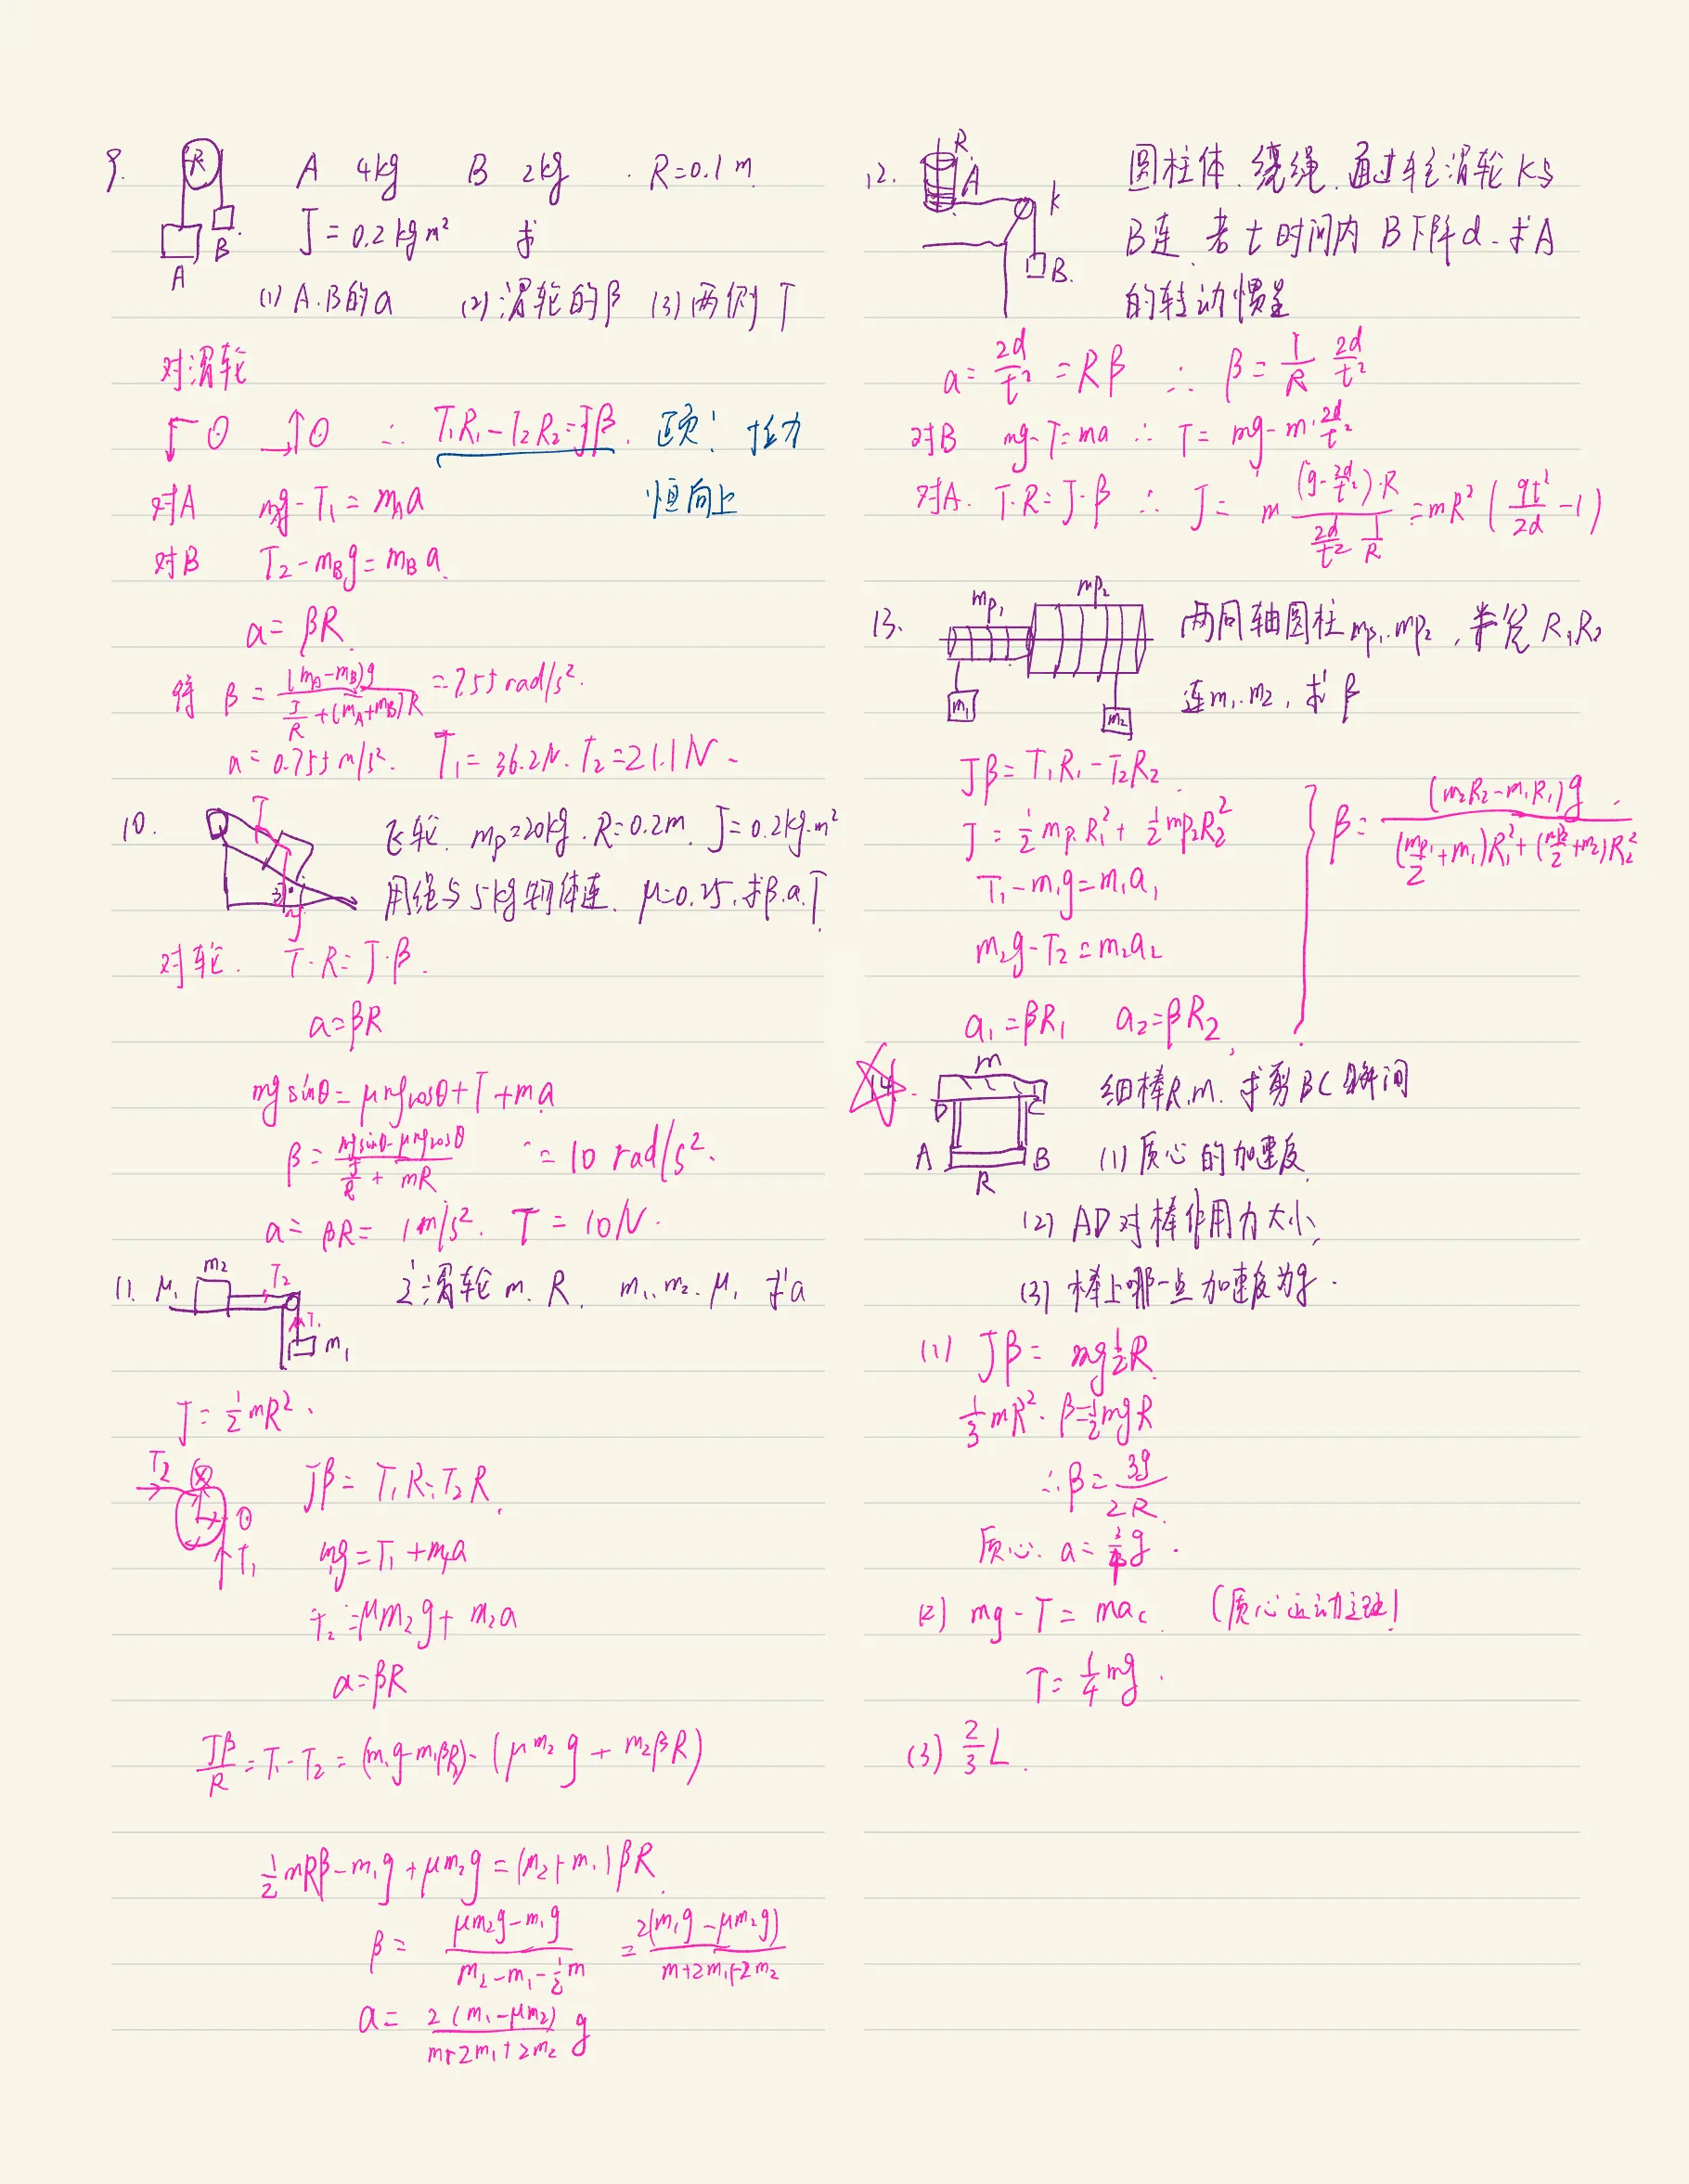 9. R A 4kg B 2kg . R=0.1m
J=0.2kgm² 求
A B
(1) A.B的a (2) 滑轮的β (3) 两侧T
对滑轮
⊙ ⊙ ∴ T₁R₁-T₂R₂=Jβ. 正负! 拉力
恒向上
对A mg-T₁=m_A a
对B T₂-m_B g=m_B a
a=βR
得 β=\frac{(m_A-m_B)g}{\frac{J}{R}+(m_A+m_B)R}=7.55rad/s².
a=0.755m/s². T₁=36.2N. T₂=21.1N.
10. T 飞轮. mp=20kg. R=0.2m. J=0.2kg.m²
用绳与5kg物体连. μ=0.25. 求β.a.T
对轮. T·R=J·β.
a=βR
mgsinθ=μmgcosθ+T+ma
β=\frac{mgsinθ-μmgcosθ}{\frac{J}{R}+mR} =10 rad/s².
a=βR=1m/s². T=10N.
11. μ. m₂ T₂ T₁ m₁ 定滑轮m. R. m₁.m₂.μ. 求a
J=\frac{1}{2}mR².
T₂ ⊗ ⊙ T₁ Jβ=T₁R-T₂R.
m₁g=T₁+m₁a
T₂=μm₂g+m₂a
a=βR
\frac{Jβ}{R}=T₁-T₂=(m₁g-m₁βR)-(μm₂g+m₂βR)
\frac{1}{2}mRβ-m₁g+μm₂g=(m₂+m₁)βR
β=\frac{μm₂g-m₁g}{m₂-m₁-\frac{1}{2}m}=\frac{2(m₁g-μm₂g)}{m+2m₁+2m₂}
a=\frac{2(m₁-μm₂)}{m+2m₁+2m₂}g
12. R. A K B. 圆柱体.绕绳.通过轻滑轮K与
B连.若t时间内B下降d.求A
的转动惯量
a=\frac{2d}{t²}=Rβ ∴ β=\frac{1}{R}\frac{2d}{t²}
对B mg-T=ma ∴ T=mg-m·\frac{2d}{t²}
对A. T·R=J·β ∴ J=m\frac{(g-\frac{2d}{t²})·R}{\frac{2d}{t²}\frac{1}{R}}=mR²(\frac{gt²}{2d}-1)
13. mp₁ mp₂ m₁ m₂ 两同轴圆柱mp₁.mp₂,半径R₁R₂
连m₁.m₂,求β
Jβ=T₁R₁-T₂R₂
J=\frac{1}{2}mp₁R₁²+\frac{1}{2}mp₂R₂²
T₁-m₁g=m₁a₁
m₂g-T₂=m₂a₂
a₁=βR₁ a₂=βR₂
β=\frac{(m₂R₂-m₁R₁)g}{(\frac{mp₁}{2}+m₁)R₁²+(\frac{mp₂}{2}+m₂)R₂²}
14. m D C A B R 细棒R.m. 求剪BC瞬间
(1) 质心的加速度
(2) AD对棒作用力大小
(3) 棒上哪一点加速度为g.
(1) Jβ=mg\frac{1}{2}R
\frac{1}{3}mR²·β=\frac{1}{2}mgR
∴β=\frac{3g}{2R}
质心. a=\frac{3}{4}g.
(2) mg-T=ma_c (质心运动定理)
T=\frac{1}{4}mg.
(3) \frac{2}{3}L.